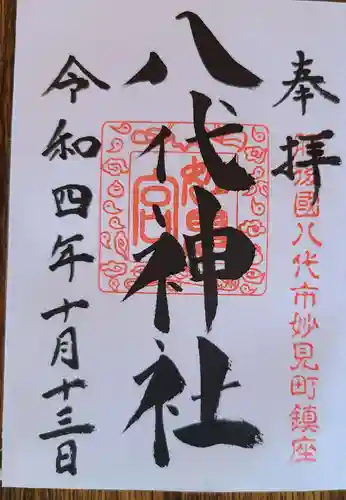 奉拝
肥後國八代市妙見町鎮座
八代神社
妙見宮
令和四年十月十三日